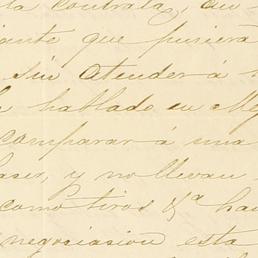 la contrata, su
ante que pusiera
sin atender á
hablado en
comparar á una
y no llevan
como tiros &a ha
negociasion esta